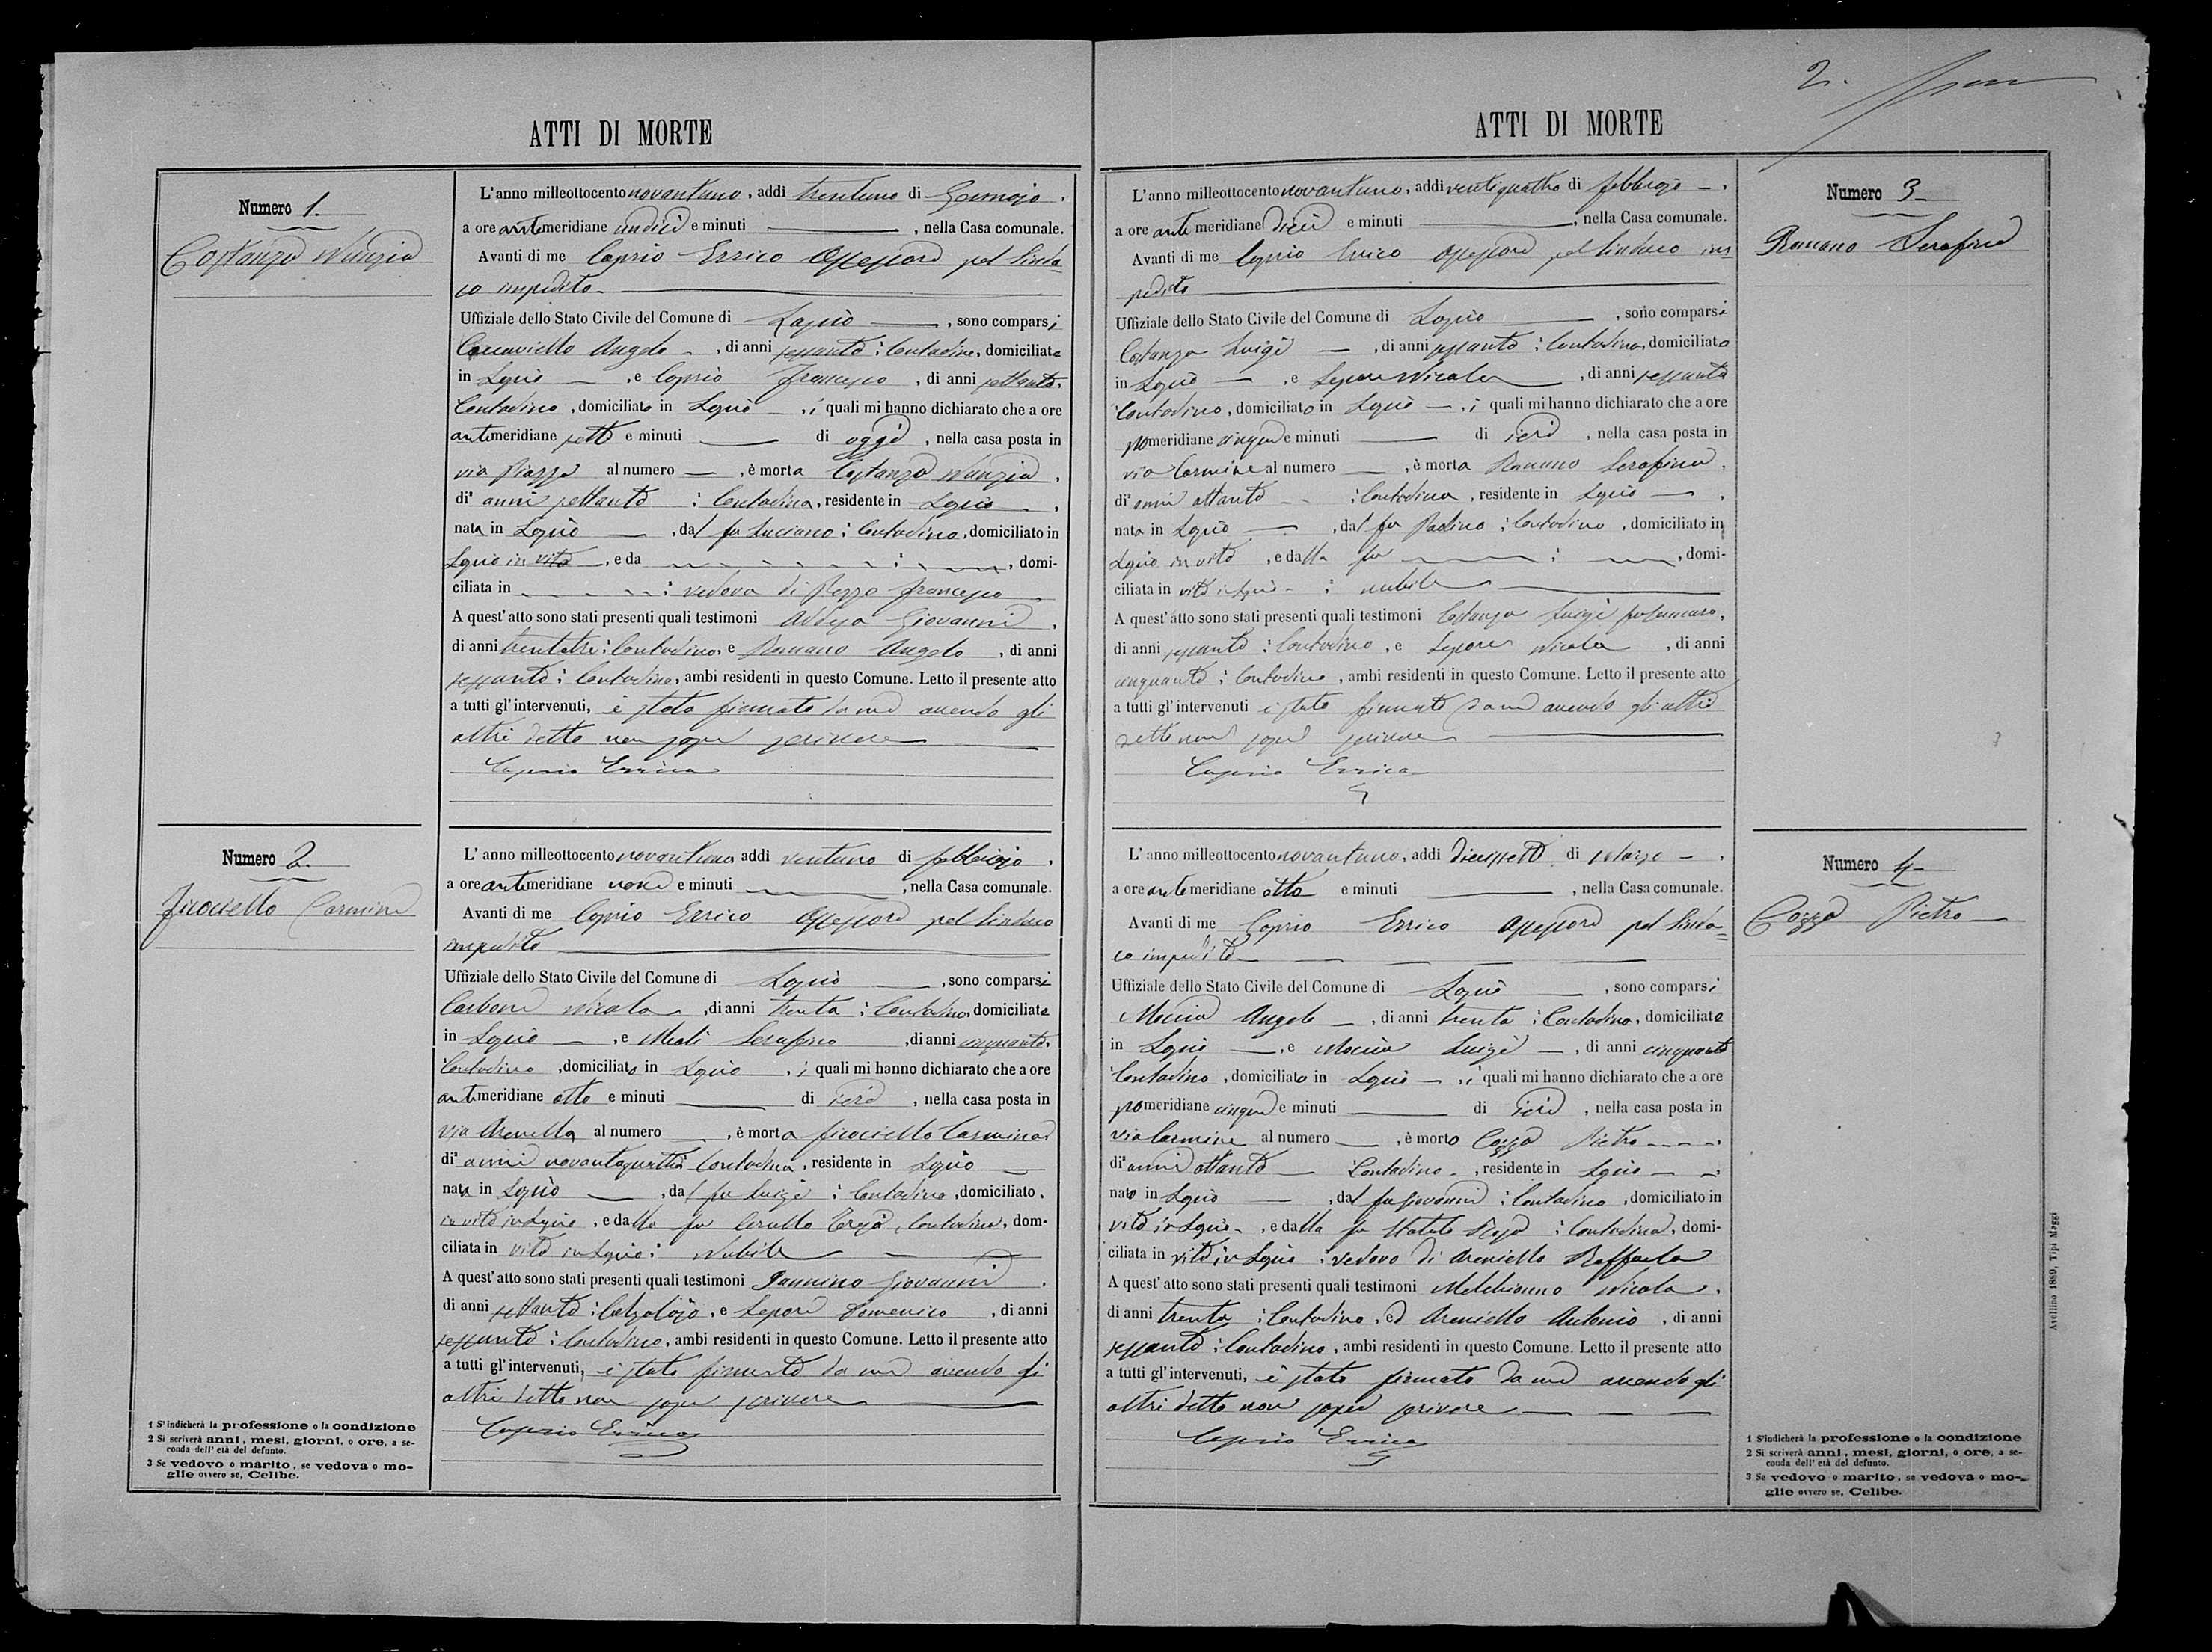 ATTI DI MORTE
Numero 1.
Costanza Nunzia
L'anno milleottocento novantuno, addi trentuno di Gennajo.
a ore antimeridiane undici e minuti ———, nella Casa comunale.
Avanti di me Caprio Errico Assessore pel Sinda-
co impedito
Uffiziale dello Stato Civile del Comune di Lapio ———, sono comparsi
Angelo, di anni sessanta: Contadino, domiciliato
in Lapio ——, e Caprio Francesco, di anni settanta,
Contadino, domiciliato in Lapio ——, i quali mi hanno dichiarato che a ore
antimeridiane sette e minuti ——— di oggi, nella casa posta in
via Piazza al numero ——, è morta Costanza Nunzia,
di anni settanta: Contadina, residente in Lapio,
nata in Lapio ——, dal fu Luciano: Contadino, domiciliato in
Lapio in vita, e da ———:———, domi-
ciliata in ———: vedova di Rozzo Francesco
A quest'atto sono stati presenti quali testimoni Addesa Giovanni,
di anni trentatre: Contadino, e Romano Angelo, di anni
sessanta: Contadino, ambi residenti in questo Comune. Letto il presente atto
a tutti gl'intervenuti, è stato firmato da me avendo gli
altri detto non saper scrivere
Caprio Errico
Numero 2.
Ficociello Carmina
L'anno milleottocento novantuno addi ventuno di febbrajo.
a ore antimeridiane nove e minuti ———, nella Casa comunale.
Avanti di me Caprio Errico Assessore pel Sindaco
impedito
Uffiziale dello Stato Civile del Comune di Lapio ——, sono comparsi
Carbone Nicola, di anni trenta: Contadino, domiciliato
in Lapio ——, e Meoli Serafino, di anni cinquanta,
Contadino, domiciliato in Lapio, i quali mi hanno dichiarato che a ore
antimeridiane otto e minuti ——— di ieri, nella casa posta in
via Arenella al numero ——, è morta Ficociello Carmina
di anni novantaquattro Contadina, residente in Lapio
nata in Lapio ——, dal fu Luigi: Contadino, domiciliato.
in vita in Lapio, e dalla fu Cerullo Teresa, Contadina, dom-
ciliata in vita in Lapio: Nubile
A quest'atto sono stati presenti quali testimoni Iannino Giovanni.
di anni settanta: Calzolajo, e Lepore Domenico, di anni
sessanta: Contadino, ambi residenti in questo Comune. Letto il presente atto
a tutti gl'intervenuti, è stato firmato da me avendo gli
altri detto non saper scrivere
Caprio Errico
1 S'indicherà la professione o la condizione
2 Si scriverà anni, mesi, giorni, o ore, a se-
conda dell'età del defunto.
3 Se vedovo o marito, se vedova o mo-
glie ovvero se, Celibe.
2.
ATTI DI MORTE
Numero 3
Romano Serafina
L'anno milleottocento novantuno, addi ventiquattro di febbrajo.
a ore antimeridiane dieci e minuti ———, nella Casa comunale.
Avanti di me Caprio Errico Assessore pel Sindaco im-
pedito
Uffiziale dello Stato Civile del Comune di Lapio ———, sono comparsi
Costanza Luigi ——, di anni sessanta: Contadino, domiciliato
in Lapio ——, e Lepore Nicola, di anni sessanta
Contadino, domiciliato in Lapio ——, i quali mi hanno dichiarato che a ore
pomeridiane cinque e minuti ——— di ieri, nella casa posta in
via Carmine al numero ——, è morta Romano Serafina,
di anni ottanta: Contadina, residente in Lapio ——,
nata in Lapio ——, dal fu Paolino: Contadino, domiciliato in
Lapio in vita, e dalla fu ———:———, domi-
ciliata in vita in Lapio: nubile
A quest'atto sono stati presenti quali testimoni Costanza Luigi fu Gennaro,
di anni sessanta: Contadino, e Lepore Nicola, di anni
cinquanta: Contadino, ambi residenti in questo Comune. Letto il presente atto
a tutti gl'intervenuti è stato firmato da me avendo gli altri
detto non saper scrivere
Caprio Errico
Numero 4
Cozza Pietro
L'anno milleottocento novantuno, addi diecissette di Marzo.
a ore antimeridiane otto e minuti ———, nella Casa comunale.
Avanti di me Caprio Errico Assessore pel Sinda-
co impedito
Uffiziale dello Stato Civile del Comune di Lapio ——, sono comparsi
Moccia Angelo ——, di anni trenta: Contadino, domiciliato
in Lapio ——, e Moccia Luigi ——, di anni cinquanta
Contadino, domiciliato in Lapio ——, i quali mi hanno dichiarato che a ore
pomeridiane cinque e minuti ——— di ieri, nella casa posta in
via Carmine al numero ——, è morto Cozza Pietro
di anni ottanta Contadino, residente in Lapio
nato in Lapio ——, dal fu Giovanni: Contadino, domiciliato in
vita in Lapio, e dalla fu Natale: Contadina, domi-
ciliata in vita in Lapio: vedovo di Areniello Raffaela
A quest'atto sono stati presenti quali testimoni Melchionno Nicola,
di anni trenta: Contadino, ed Areniello Antonio, di anni
sessanta: Contadino, ambi residenti in questo Comune. Letto il presente atto
a tutti gl'intervenuti, è stato firmato da me avendo gli
altri detto non saper scrivere
Caprio Errico
1 S'indicherà la professione o la condizione
2 Si scriverà anni, mesi, giorni, o ore, a se-
conda dell'età del defunto.
3 Se vedovo o marito, se vedova o mo-
glie ovvero se, Celibe.
Avellino 1889, Tipi Maggi